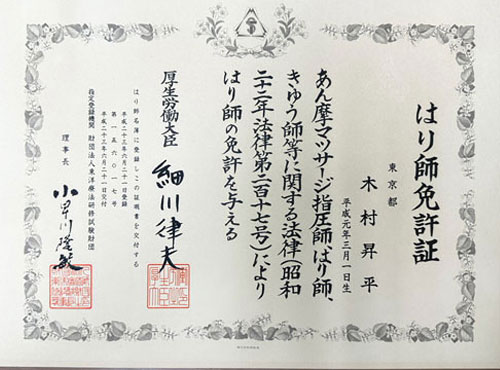 はり師免許証
東京都
木村昇平
平成元年三月一日生
あん摩マツサージ指圧師、はり師、
きゅう師等に関する法律(昭和
二十二年法律第二百十七号)により
はり師の免許を与える
厚生労働大臣
細川律夫
はり師名簿に登録しこの証明書を交付する
平成二十三年六月二十一日登録
第一五六〇七号
平成二十三年六月二十一日交付
指定登録機関 財団法人東洋療法研修試験財団
理事長